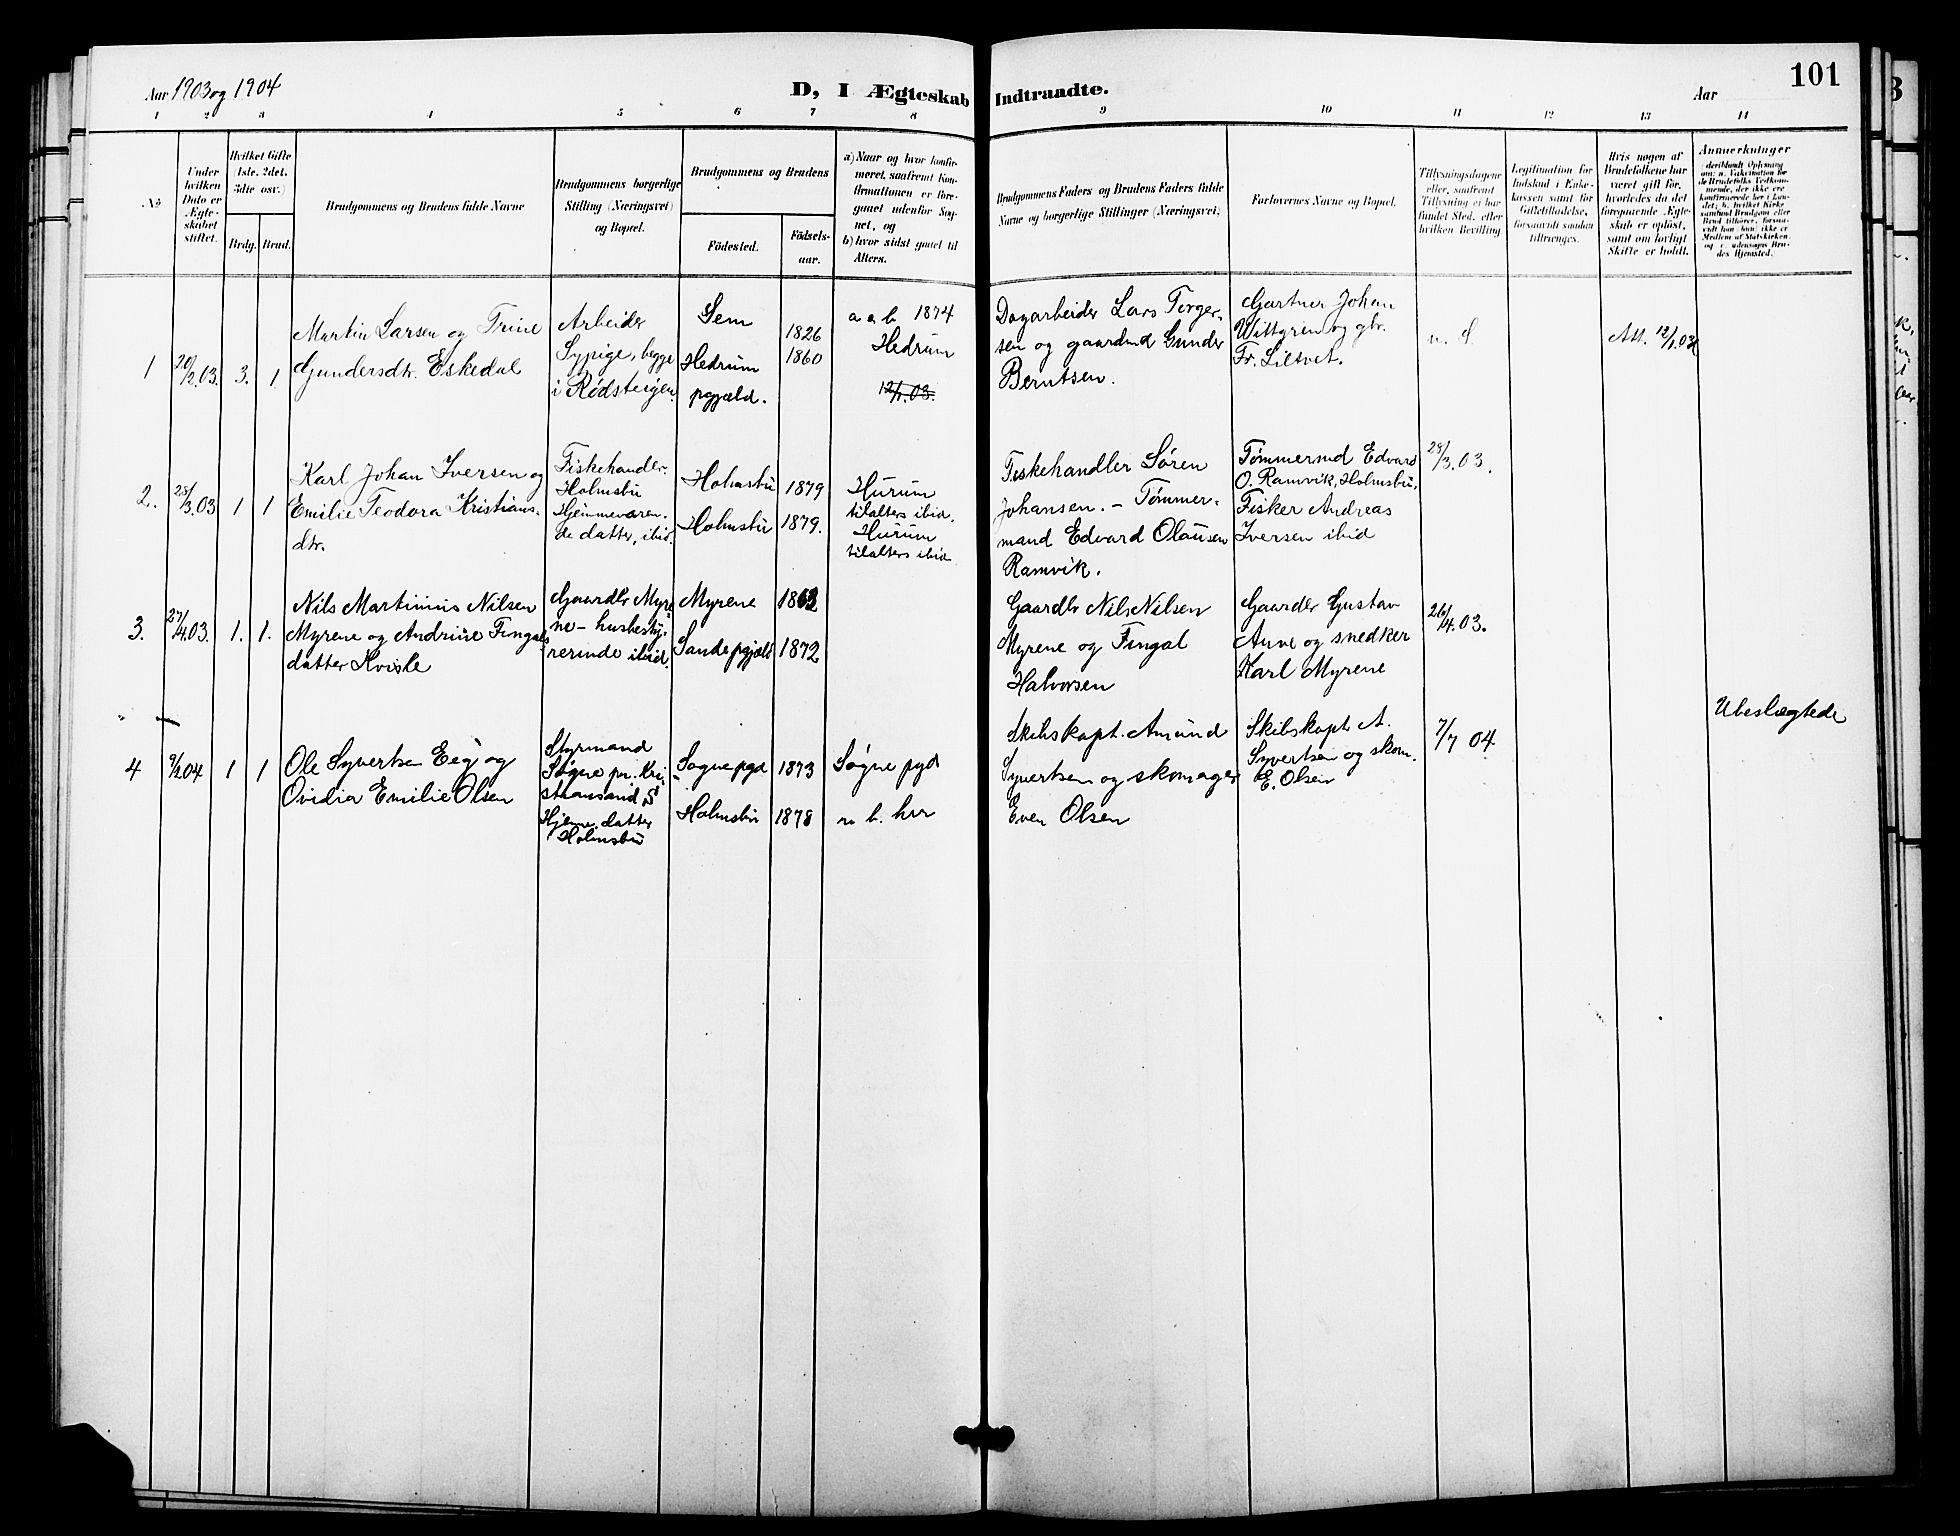 101
Aar 1903 og 1904
D, I Ægteskab Indtraadte.
Aar
1 2 3 4 5 6 7 8 9 10 11 12 13 14
No
Under
hvilken
Dato er
Ægte-
skabet
stiftet.
Hvilket Gifte
(1ste, 2det,
3die osv.)
Brdg. Brud.
Brudgommens og Brudens fulde Navne
Brudgommens borgerlige
Stilling (Næringsvei)
og Bopæl.
Brudgommens og Brudens
Födested.
Födsels-
aar.
a) Naar og hvor konfir-
meret, saafremt Kon-
firmationen er fore-
gaaet udenfor Sog-
net, og
b) hvor sidst gaaet til
Alters.
Brudgommens Faders og Brudens Faders fulde
Navne og borgerlige Stillinger (Næringsvei)
Forlovernes Navne og Bopæl.
Tillysningsdagene
eller, saafremt
Tillysning ei har
fundet Sted, efter
hvilken Bevilling
Legitimation for
Indskud i Enke-
kassen samt for
Giftetilladelse,
forsaavidt saadan
tiltrænges.
Hvis nogen af
Brudefolkene har
været gift før,
hvorledes da det
foregaaende Ægte-
skab er opløst,
samt om lovligt
Skifte er holdt.
Anmerkninger
(deriblandt Oplysning
om: a. Vaksination for
de Brudefolks Vedkom-
mende, der ikke ere
konfirmerede her i Lan-
det; b. hvilket Kirke
samfund Brudgom eller
Brud tilhører, forsaa-
vidt han (hun) ikke er
Medlem af Statskirken,
og c. udensogns Bru-
des Hjemsted.
1
20/2.03.
3. 1
Martin Larsen og Trine
Gundersdtr. Eskedal
Arbeider
Sypige, begge
i Rødsteigen.
Sem
Hedrum
pgjæld.
1826
1860
a a b. 1874
Hedrum
12/1.03.
Dagarbeider Lars Torger-
sen og gaardmd Gunder
Berntsen.
Gartner Johan
Wittgren og gbr.
Fr. Liltvet.
Att. 12/1.03
2.
28/3.03
1 1
Karl Johan Iversen og
Emilie Teodora Kristians-
dtr.
Fiskehandler.
Holmsbu
Hjemmeværen-
de datter, ibid.
Holmsbu
Holmsbu
1879
1879.
Hurum
tilalters ibid.
Hurum
tilalters ibid
Fiskehandler Søren
Johansen. - Tømmer-
mand Edvard Olausen
Ramvik.
Tømmermd Edvard
O. Ramvik, Holmsbu,
Fisker Andreas
Iversen ibid
28/3.03.
3.
27/4.03.
1. 1.
Nils Martinius Nilsen
Myrene og Andrine Fingals
datter Kvisle
Gaardbr Myre
ne - husbesty-
rerinde ibid.
Myrene
Sande pgjæld
1872
Gaardbr Nils Nilsen
Myrene og Fingal
Halvorsen
Gaardbr Gustav
Auve og snedker
Karl Myrene
26/4.03.
4
1 1
Ole Syvertsen Eeg og
Ovidia Emilie Olsen
Styrmand
Søgne pr. Kri-
stiansand S
Hjemv. datter
Holmsbu
Søgne pgd
Holmsbu
1873
1878
Søgne pgd
n b. her
Skibskapt. Amund
Syvertsen og skomager
Even Olsen
Skibskapt A.
Syvertsen og skom.
E. Olsen
7/7 04
Ubeslægtede